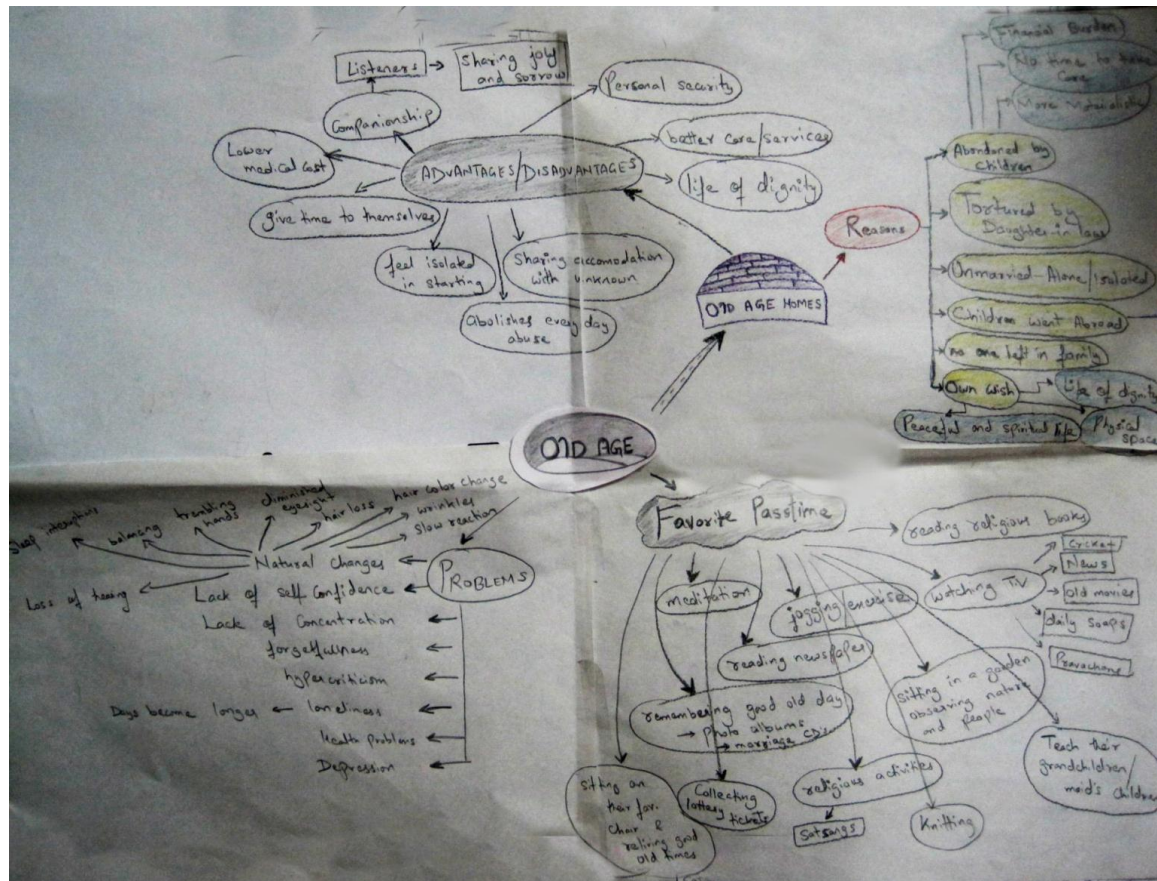 Listeners
Sharing joy
and sorrow
Companionship
Personal security
Lower
medical cost
better care/services
ADVANTAGES/DISADVANTAGES
life of dignity
give time to themselves
feel isolated
in starting
Sharing accomodation
with unknown
Abolishes every day
abuse
OLD AGE HOMES
Reasons
Financial Burden
No time to take
Care
More Materialistic
Abandoned by
Children
Tortured by
Daughter in laws
Unmarried-Alone/isolated
Children Went Abroad
no one left in family
Own wish
Life of dignity
Peaceful and spiritual life
Physical
space
OLD AGE
PROBLEMS
Natural changes
Sleep interruptions
balancing
trembling
hands
diminished
eyesight
hair loss
hair color change
wrinkles
slow reaction
Loss of hearing
Lack of self Confidence
Lack of Concentration
forgetfullness
hypercriticism
Days become longer
loneliness
Health Problems
Depression
Favorite Passtime
reading religious books
watching TV
Cricket
News
old movies
daily soaps
Pravachans
meditation
jogging/exercise
reading newspaper
remembering good old day
→ photo albums
→ marriage CD's
sitting in a garden
observing nature
and people
Teach their
grandchildren/
maid's children
sitting on
their fav.
chair &
reliving good
old times
Collecting
lottery
tickets
religious activities
Satsangs
Knitting